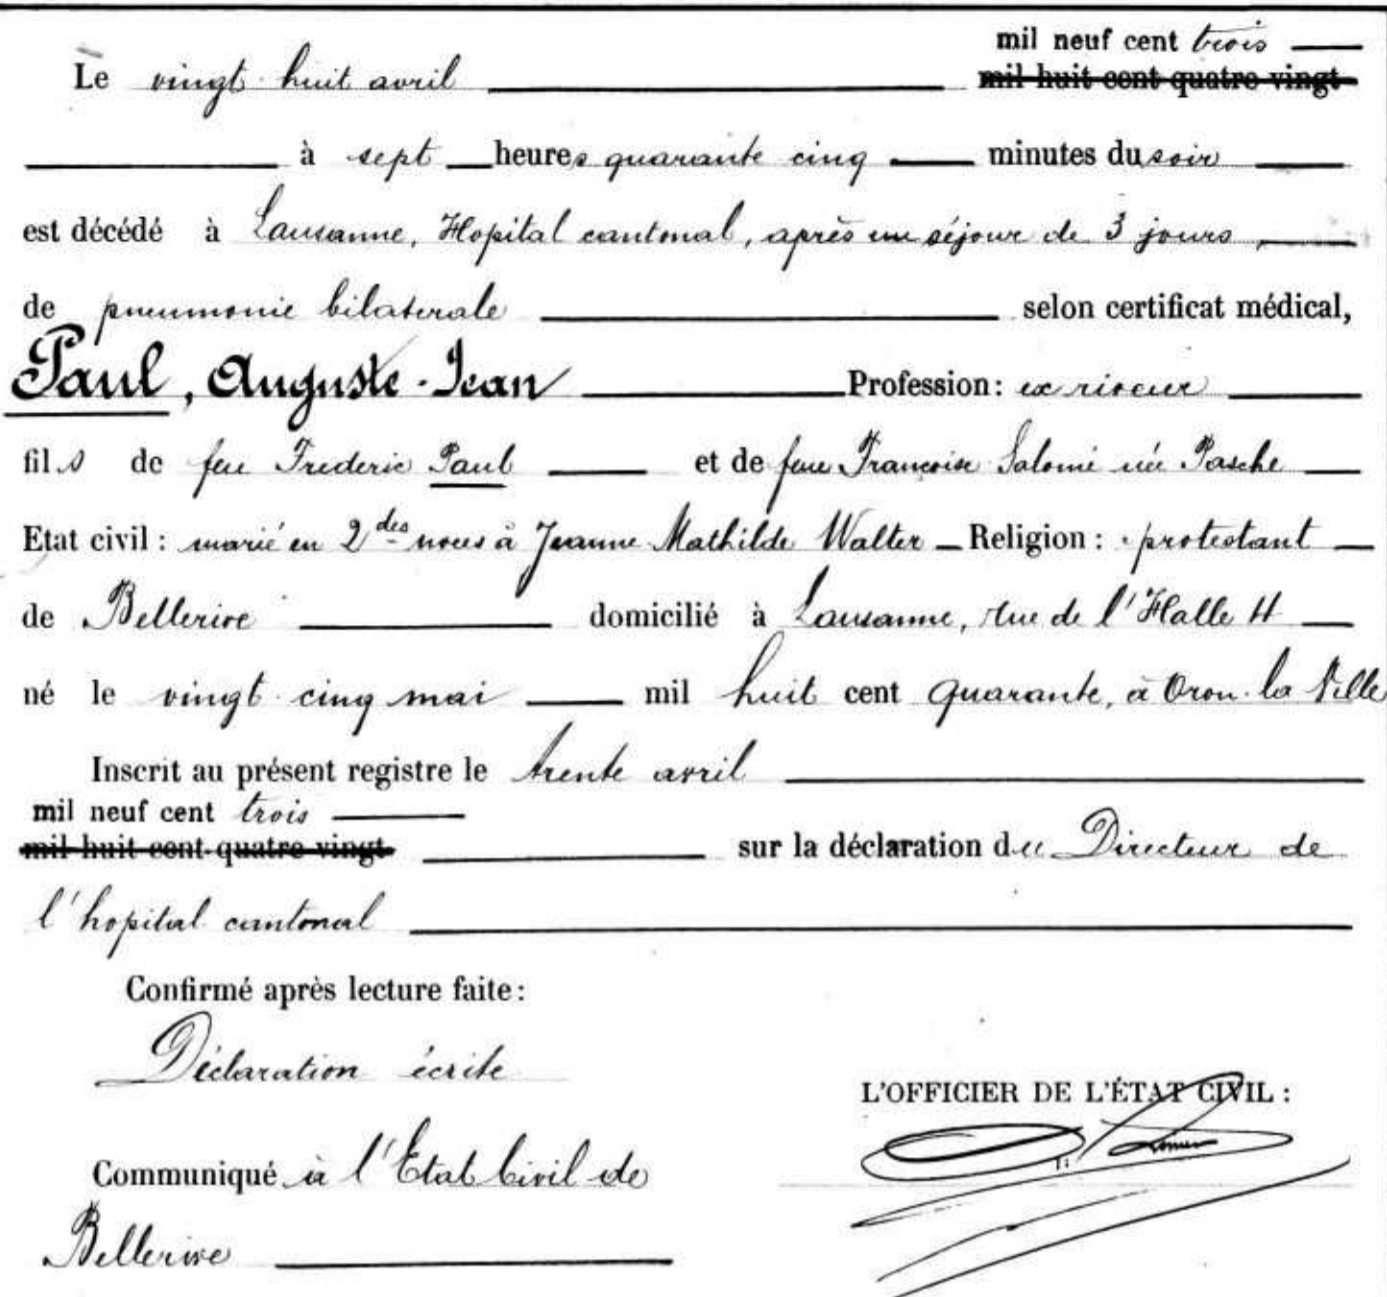 mil neuf cent trois
Le vingt huit avril mil huit cent quatre vingt
à sept heures quarante cinq minutes du soir
est décédé à Lausanne, Hopital cantonal, après un séjour de 3 jours,
de pneumonie bilaterale selon certificat médical,
Paul, Auguste-Jean Profession: ex
fils de feu Frederic Paul et de feue Françoise Salomé née Pasche
Etat civil: marié en 2des noces à Jeanne Mathilde Walter Religion: protestant
de Bellerive domicilié à Lausanne, rue de l'Halle
né le vingt cinq mai mil huit cent quarante, à Oron la Ville
Inscrit au présent registre le trente avril
mil neuf cent trois
mil huit cent quatre vingt sur la déclaration du Directeur de
l'hopital cantonal
Confirmé après lecture faite:
Déclaration écrite
L'OFFICIER DE L'ÉTAT CIVIL:
Communiqué à l'Etat Civil de
Bellerive